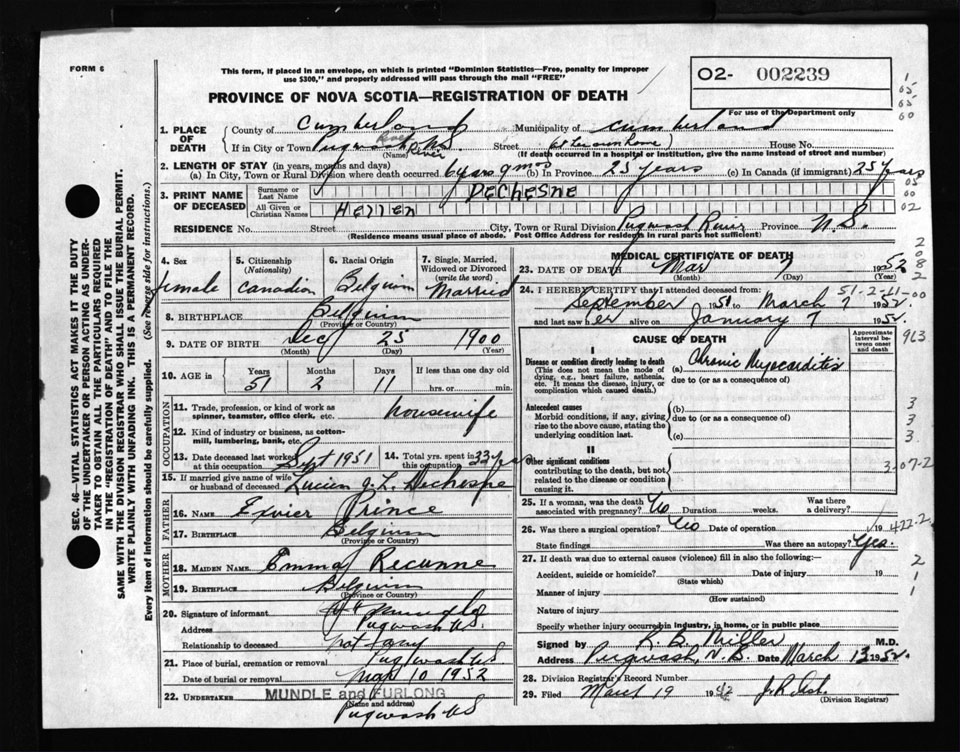 FORM 6
This form, if placed in an envelope, on which is printed "Dominion Statistics—Free, penalty for improper
use $300," and properly addressed will pass through the mail "FREE"
O2- 002239
For use of the Department only
PROVINCE OF NOVA SCOTIA—REGISTRATION OF DEATH
1. PLACE OF DEATH
County of Cumberland Municipality of Cumberland
If in City or Town Pugwash River N.S. Street (at her own home) House No.
(Name) (If death occurred in a hospital or institution, give the name instead of street and number)
2. LENGTH OF STAY (in years, months and days)
(a) In City, Town or Rural Division where death occurred 6 years 9 mos (b) In Province 25 years (c) In Canada (if immigrant) 25 years
3. PRINT NAME OF DECEASED
Surname or Last Name DeCHesne
All Given or Christian Names Hellen
RESIDENCE No. Street City, Town or Rural Division Pugwash River Province N.S.
(Residence means usual place of abode. Post Office Address for residents in rural parts not sufficient)
SEC. 46—VITAL STATISTICS ACT MAKES IT THE DUTY
OF THE UNDERTAKER OR PERSON ACTING AS UNDER-
TAKER TO OBTAIN ALL THE PARTICULARS REQUIRED
IN THE "REGISTRATION OF DEATH" AND TO FILE THE
SAME WITH THE DIVISION REGISTRAR WHO SHALL ISSUE THE BURIAL PERMIT.
WRITE PLAINLY WITH UNFADING INK. THIS IS A PERMANENT RECORD.
Every item of information should be carefully supplied. (See reverse side for instructions.)
4. Sex female
5. Citizenship (Nationality) Canadian
6. Racial Origin Belgium
7. Single, Married, Widowed or Divorced (write the word) Married
8. BIRTHPLACE Belgium
(Province or Country)
9. DATE OF BIRTH Dec 25 1900
(Month) (Day) (Year)
10. AGE in Years Months Days If less than one day old
51 2 11 hrs. or min.
OCCUPATION
11. Trade, profession, or kind of work as
spinner, teamster, office clerk, etc. housewife
12. Kind of industry or business, as cotton-
mill, lumbering, bank, etc.
13. Date deceased last worked at this occupation Sept 1951
14. Total yrs. spent in this occupation 33 years
15. If married give name of wife
or husband of deceased Lucien J. L. Dechesne
FATHER
16. NAME Exvier Prince
17. BIRTHPLACE Belgium
(Province or Country)
MOTHER
18. MAIDEN NAME Emma
19. BIRTHPLACE Belgium
(Province or Country)
20. Signature of informant
Address Pugwash N.S.
Relationship to deceased not any
21. Place of burial, cremation or removal Pugwash N.S.
Date of burial or removal Mar 10 1952
22. UNDERTAKER MUNDLE and FURLONG
(Name and address)
Pugwash N.S.
MEDICAL CERTIFICATE OF DEATH
23. DATE OF DEATH Mar 7 1952
(Month) (Day) (Year)
24. I HEREBY CERTIFY that I attended deceased from: 51-2-11-00
September 1951 to March 7 1952
and last saw her alive on January 7 1952
CAUSE OF DEATH
Approximate interval between onset and death
I
Disease or condition directly leading to death
(This does not mean the mode of
dying, e.g., heart failure, asthenia,
etc. It means the disease, injury, or
complication which caused death.)
(a) Chronic Myocarditis
due to (or as a consequence of)
Antecedent causes
Morbid conditions, if any, giving
rise to the above cause, stating the
underlying condition last.
(b)
due to (or as a consequence of)
(c)
II
Other significant conditions
contributing to the death, but not
related to the disease or condition
causing it.
25. If a woman, was the death
associated with pregnancy? No Duration weeks. Was there a delivery?
26. Was there a surgical operation? No Date of operation 19
State findings Was there an autopsy? Yes.
27. If death was due to external causes (violence) fill in also the following:—
Accident, suicide or homicide? Date of injury 19
(State which)
Manner of injury
(How sustained)
Nature of injury
Specify whether injury occurred in industry, in home, or in public place
Signed by K. B. Miller M.D.
Address Pugwash, N.S. Date March 13 1952
28. Division Registrar's Record Number
29. Filed March 19 1952
(Division Registrar)
1
05
05
00
05
00
02
2
0
8
2
913
3
3
3
3-07-2
422-2
2
1
1